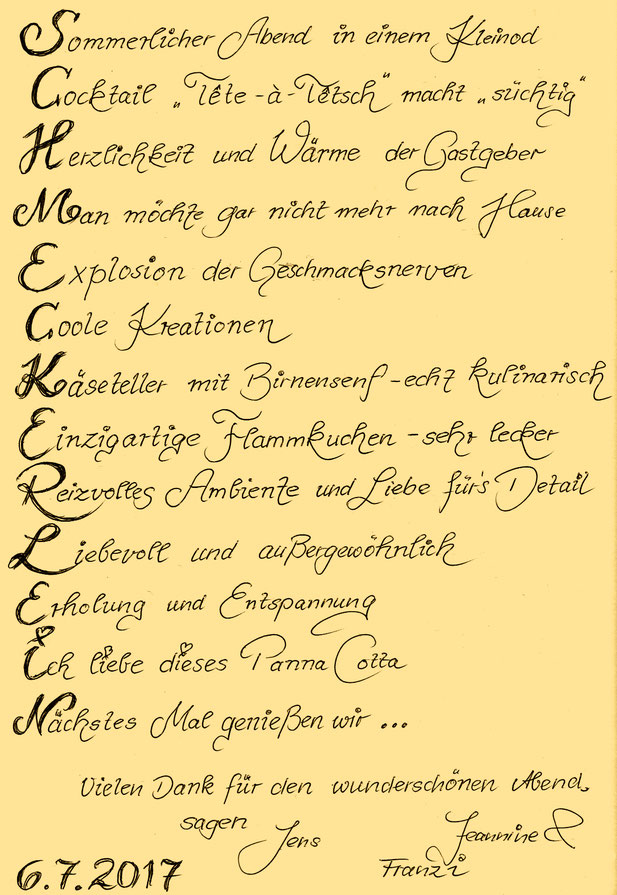 Sommerlicher Abend in einem Kleinod
Cocktail „Tête-à-Tétsch" macht „süchtig"
Herzlichkeit und Wärme der Gastgeber
Man möchte gar nicht mehr nach Hause
Explosion der Geschmacksnerven
Coole Kreationen
Käseteller mit Birnensenf - echt kulinarisch
Einzigartige Flammkuchen - sehr lecker
Reizvolles Ambiente und Liebe für's Detail
Liebevoll und außergewöhnlich
Erholung und Entspannung
Ich liebe dieses Panna Cotta
Nächstes Mal genießen wir ...
Vielen Dank für den wunderschönen Abend,
sagen Jens Jeannine &
Franzi
6.7.2017